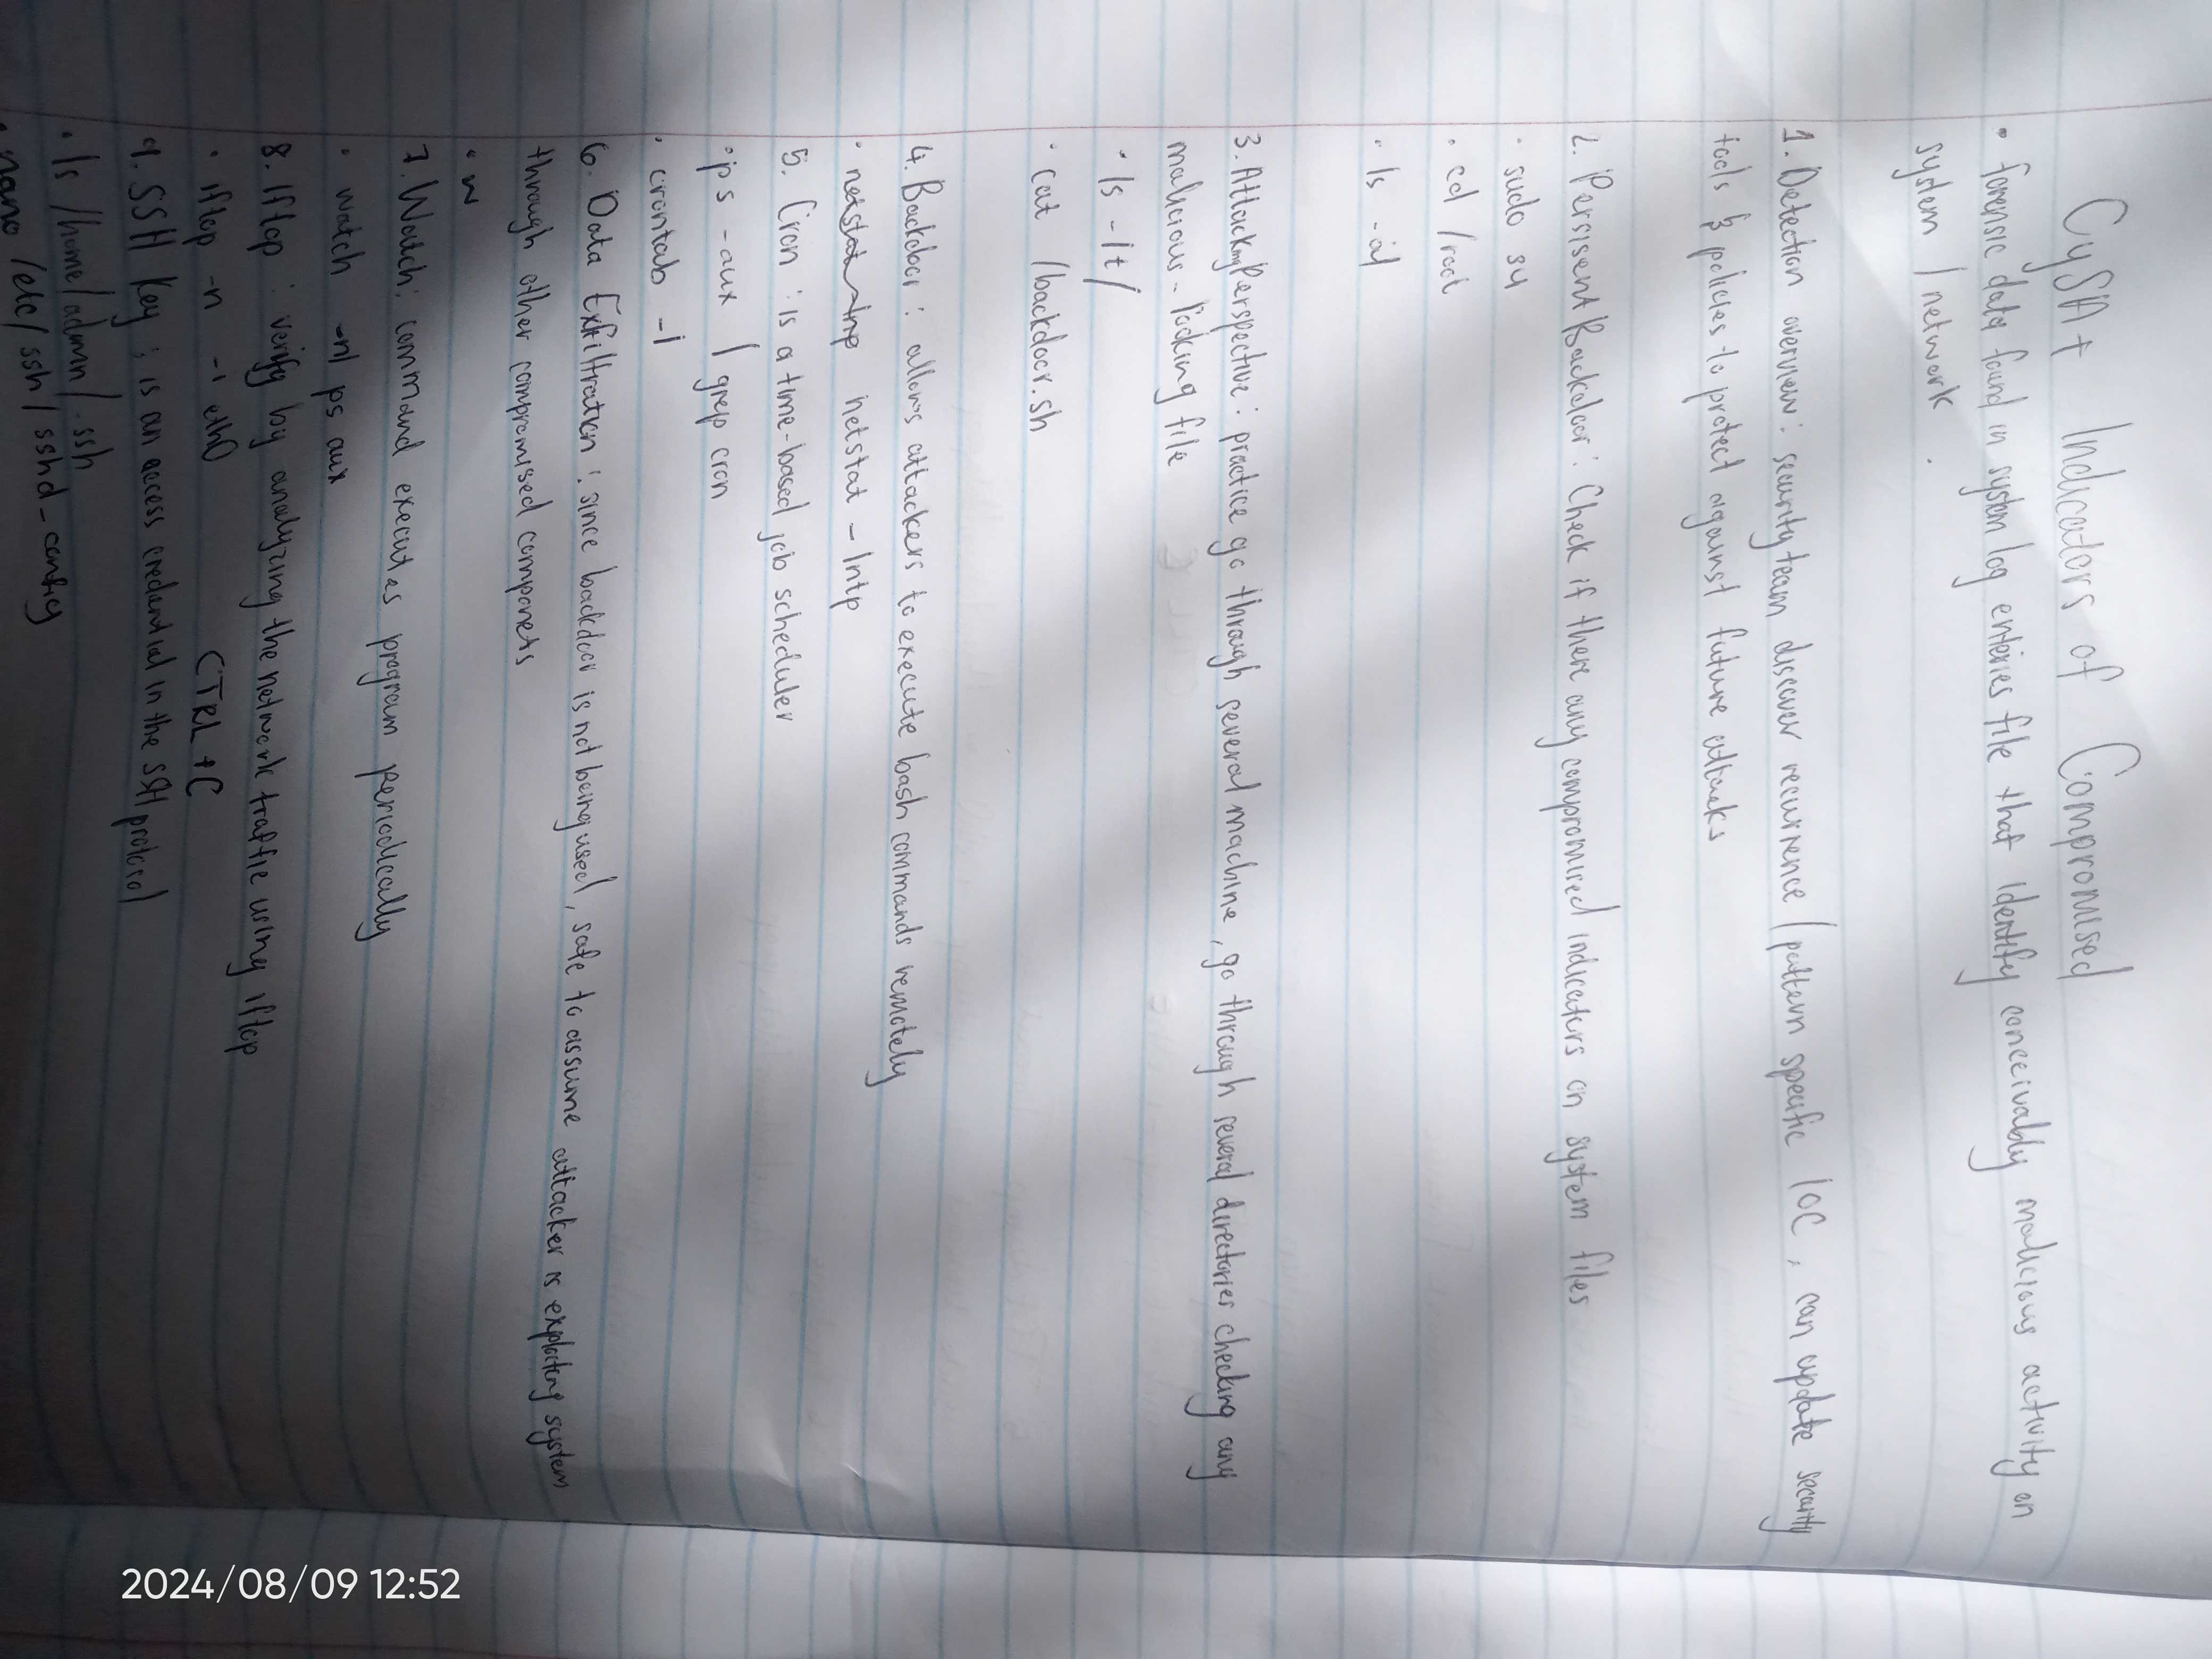 CySA+ Indicators of Compromised
• forensic data found in system log enteries file that identify conceivably malicious activity on
system / network.
1. Detection overview: security team discover recurrence / pattern specific IOC, can update security
tools & policies to protect against future attacks
2. Persisent Backdoor: Check if there any compromised indicators on system files
• sudo su
• cd /root
• ls -al
3. Attacking Perspective: practice go through several machine, go through several directories checking any
malicious-looking file
• ls -lt /
• cat /backdoor.sh
4. Backdoor: allows attackers to execute bash commands remotely
• netstat -lntp
5. Cron: is a time-based job scheduler
• ps -aux | grep cron
• crontab -l
6. Data Exfiltration: since backdoor is not being used, safe to assume attacker is exploiting system
through other compromised componets
• w
7. Watch: command executes program periodically
• watch -n1 ps aux
8. Iftop: verify by analyzing the network traffic using iftop
• iftop -n -i eth0 CTRL+C
9. SSH Key: is an access credential in the SSH protocol
• ls /home/admin/.ssh
• nano /etc/ssh/sshd_config
2024/08/09 12:52